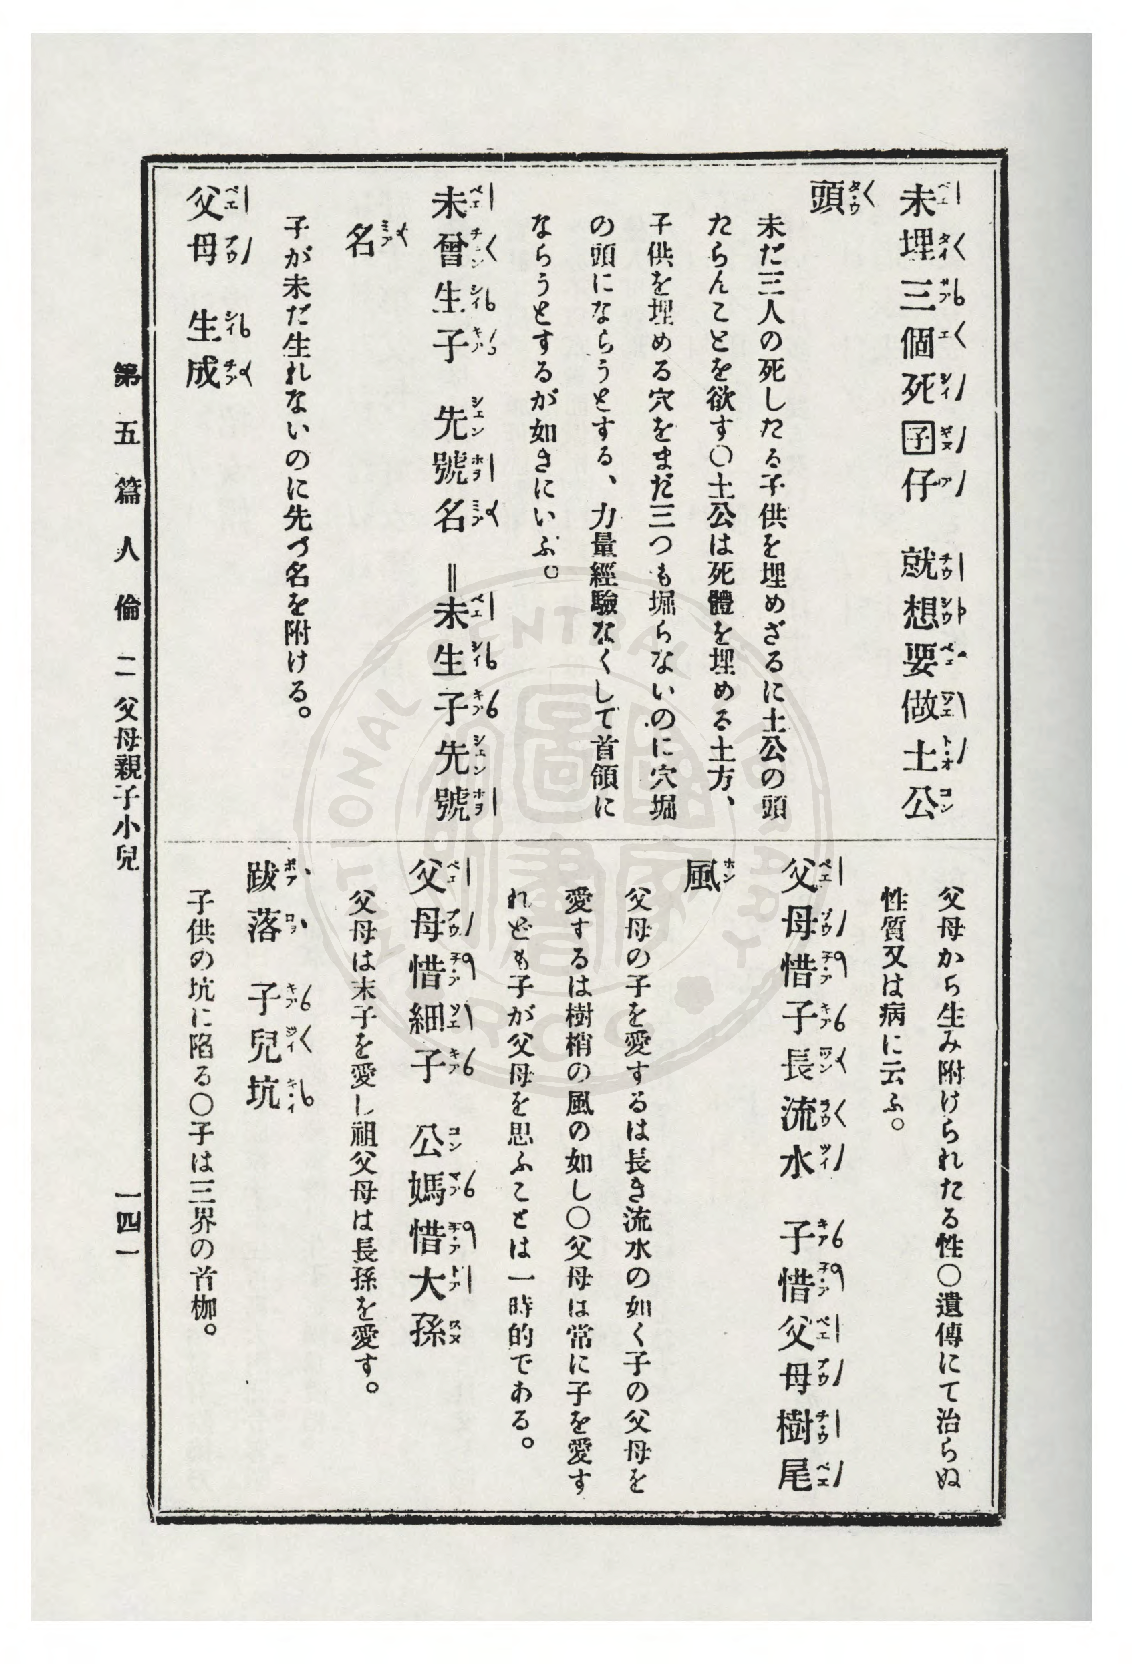 未埋三個死囝仔　就想要做土公
頭
未だ三人の死したる子供を埋めざるに土公の頭
たらんことを欲す〇土公は死體を埋める土方、
子供を埋める穴をまだ三つも堀らないのに穴堀
の頭にならうとする、力量經驗なくして首領に
ならうとするが如きにいふ。
未曾生子　先號名＝未生子先號
名
子が未だ生れないのに先づ名を附ける。
父母　生成
父母から生み附けられたる性〇遺傳にて治らぬ
性質又は病に云ふ。
父母惜子長流水　子惜父母樹尾
風
父母の子を愛するは長き流水の如く子の父母を
愛するは樹梢の風の如し〇父母は常に子を愛す
れども子が父母を思ふことは一時的である。
父母惜細子　公媽惜大孫
父母は末子を愛し祖父母は長孫を愛す。
跋落　子兒坑
子供の坑に陷る〇子は三界の首枷。
第五篇　人倫　二　父母親子小兒
一四一
NATIONAL CENTRAL LIBRARY
ROC
國家圖書館